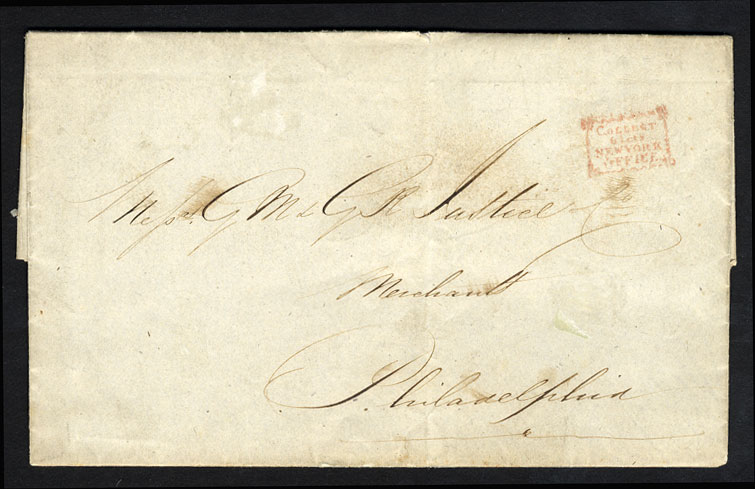 COLLECT
6 Cents
NEW YORK
OFFICE
Messrs. G M & G R Justice & Co
Merchants
Philadelphia